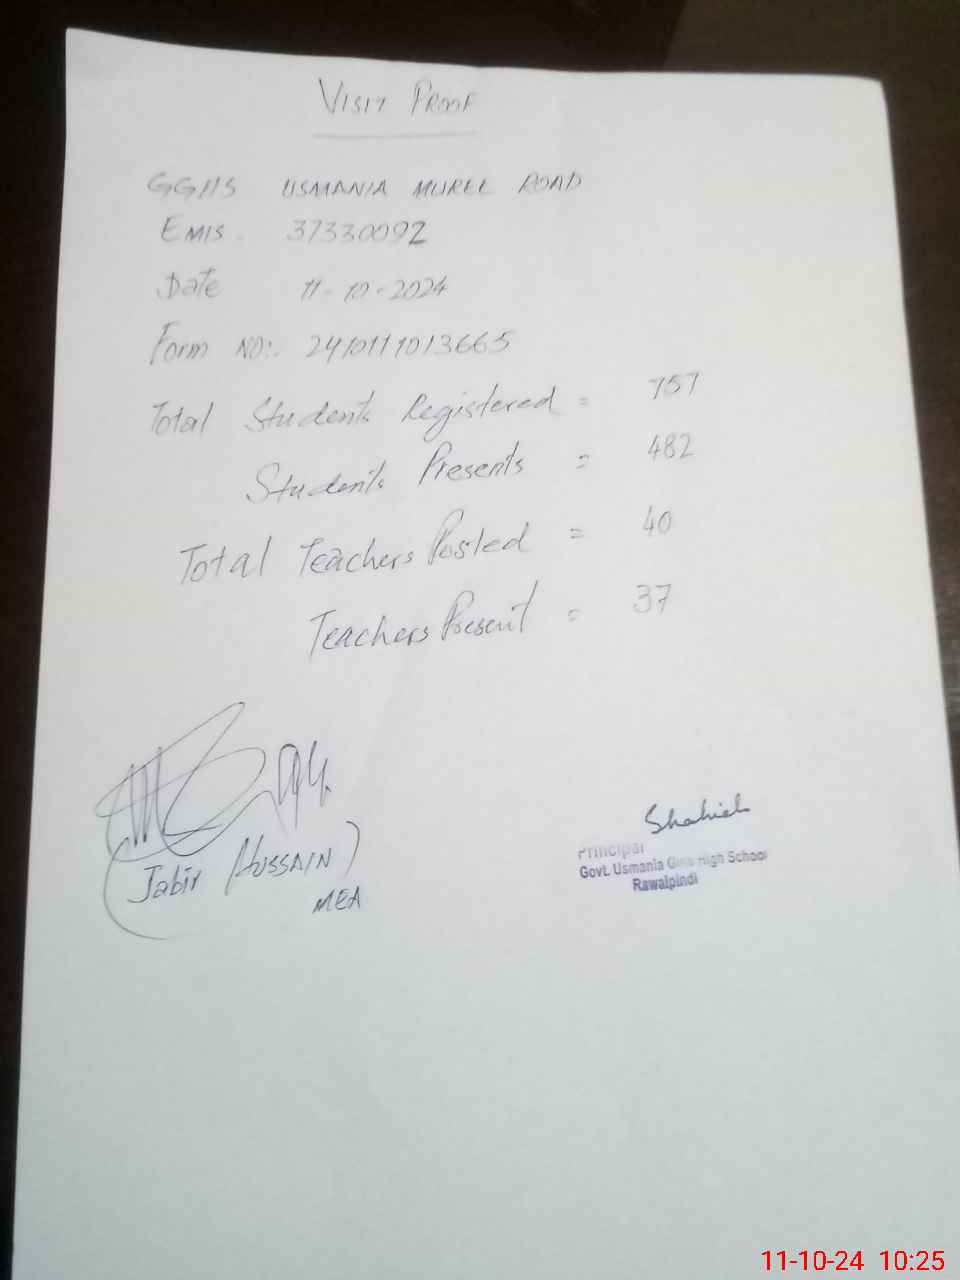 VISIT PROOF
GGHS USMANIA MUREE ROAD
EMIS. 37330092
Date 11-10-2024
Form NO:. 2410111013665
Total Students Registered = 757
Students Presents = 482
Total Teachers Posted = 40
Teachers Present = 37
(Jabir Hussain)
MEA
Shahid
Principal
Govt. Usmania Girls High School
Rawalpindi
11-10-24 10:25